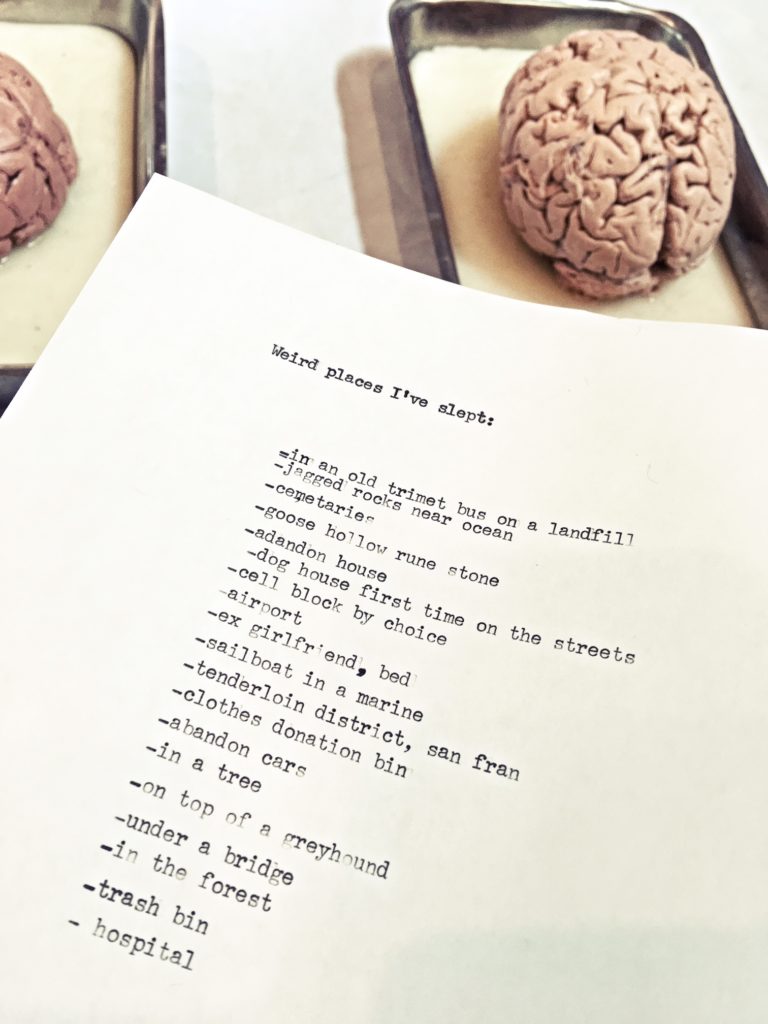 Weird places I've slept:
-in an old trimet bus on a landfill
-jagged rocks near ocean
-cemetaries
-goose hollow rune stone
-adandon house
-dog house first time on the streets
-cell block by choice
-airport
-ex girlfriend, bed
-sailboat in a marine
-tenderloin district, san fran
-clothes donation bin
-abandon cars
-in a tree
-on top of a greyhound
-under a bridge
-in the forest
-trash bin
- hospital